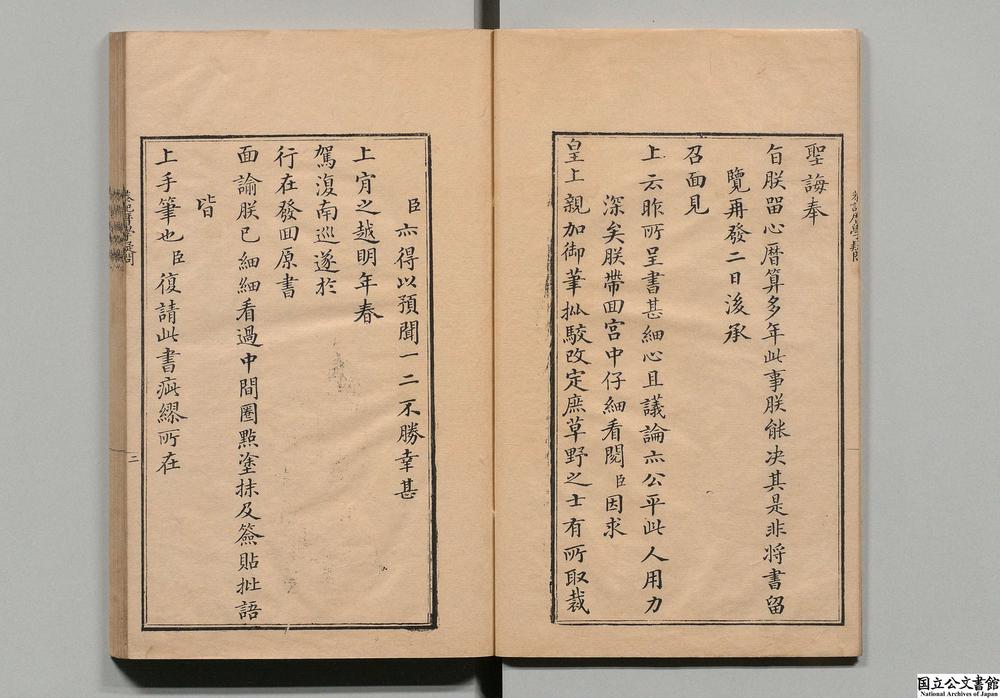 聖誨奉
旨朕留心曆算多年此事朕能决其是非将書留
覽再發二日後承
召面見
上云昨所呈書甚細心且議論亦公平此人用力
深矣朕帶回宮中仔細看閱臣因求
皇上親加御筆批駁改定庶草野之士有所取裁
臣亦得以預聞一二不勝幸甚
上肎之越明年春
駕復南巡遂於
行在發回原書
面諭朕已細細看過中間圈點塗抹及簽貼批語
皆
上手筆也臣復請此書疵繆所在
二
国立公文書館
National Archives of Japan